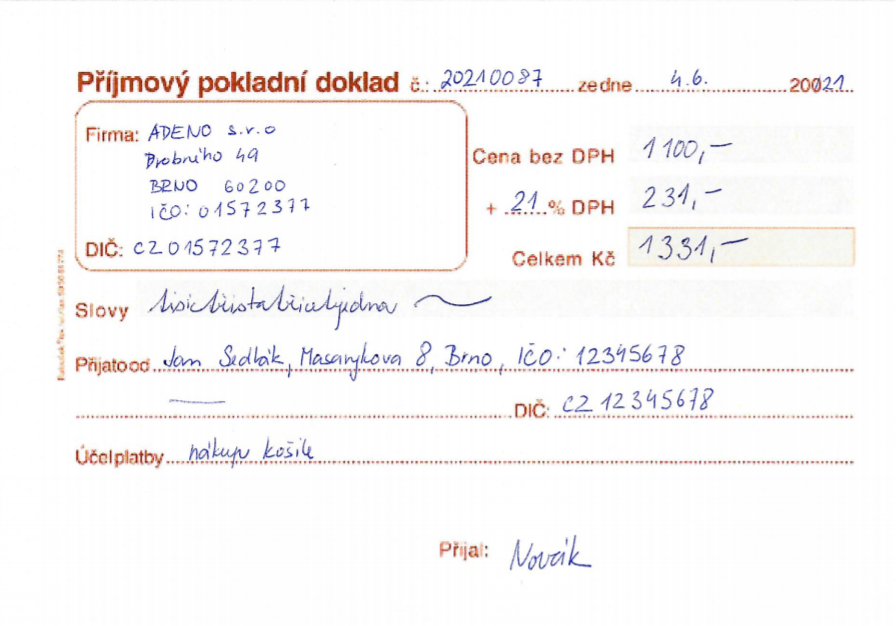 Příjmový pokladní doklad č.: 20210087 ze dne 4.6. 200121
Firma: ADENO s.r.o
Drobného 49
BRNO 60200
IČO: 01572377
DIČ: CZ01572377
Cena bez DPH 1100,-
+ 21 % DPH 231,-
Celkem Kč 1331,-
Slovy tisíctřistatřicetjedna
Přijato od Jan Sedlák, Masarykova 8, Brno, IČO: 12345678
DIČ: CZ 12345678
Účel platby nákup košile
Přijal: Novák